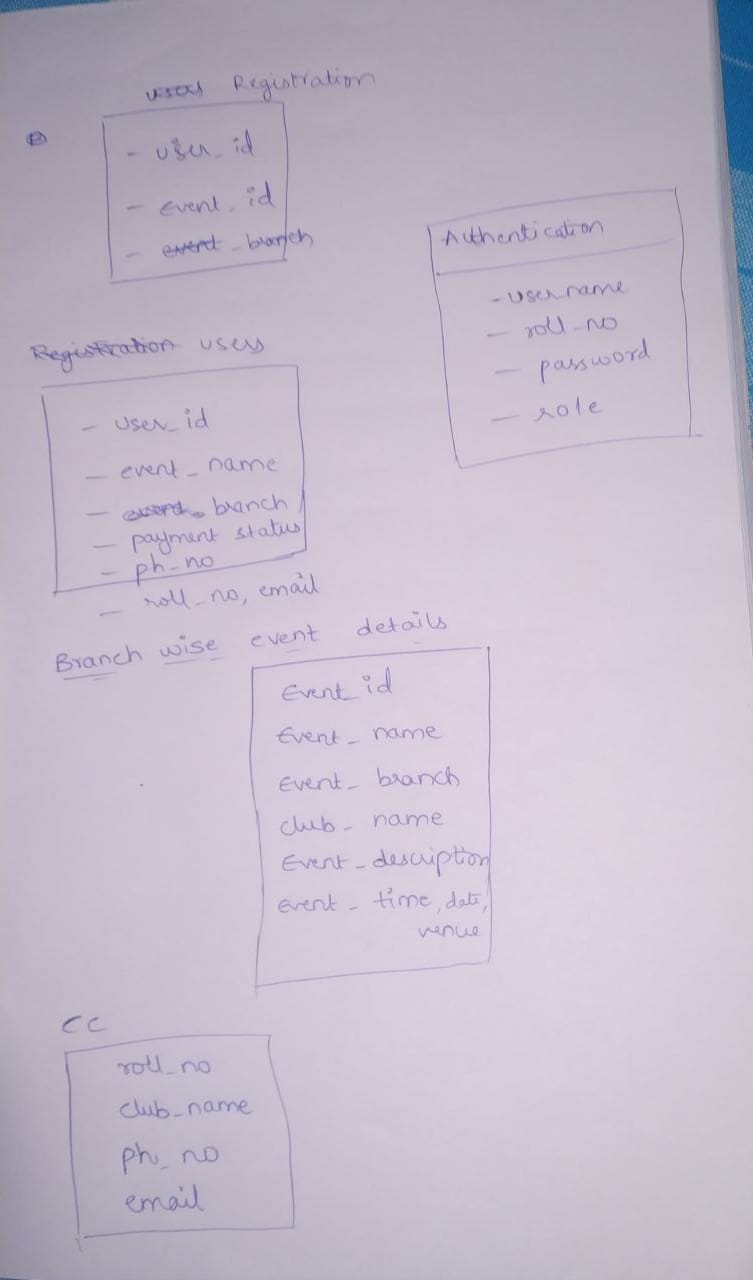 Registration
- user_id
- event_id
- event_branch
Authentication
- username
- roll_no
- password
- role
Registration users
- user_id
- event_name
- branch
- payment status
- ph_no
- roll_no, email
Branch wise event details
Event_id
Event_name
Event_branch
club_name
Event_description
Event_time, date,
venue
CC
roll_no
club_name
ph_no
email